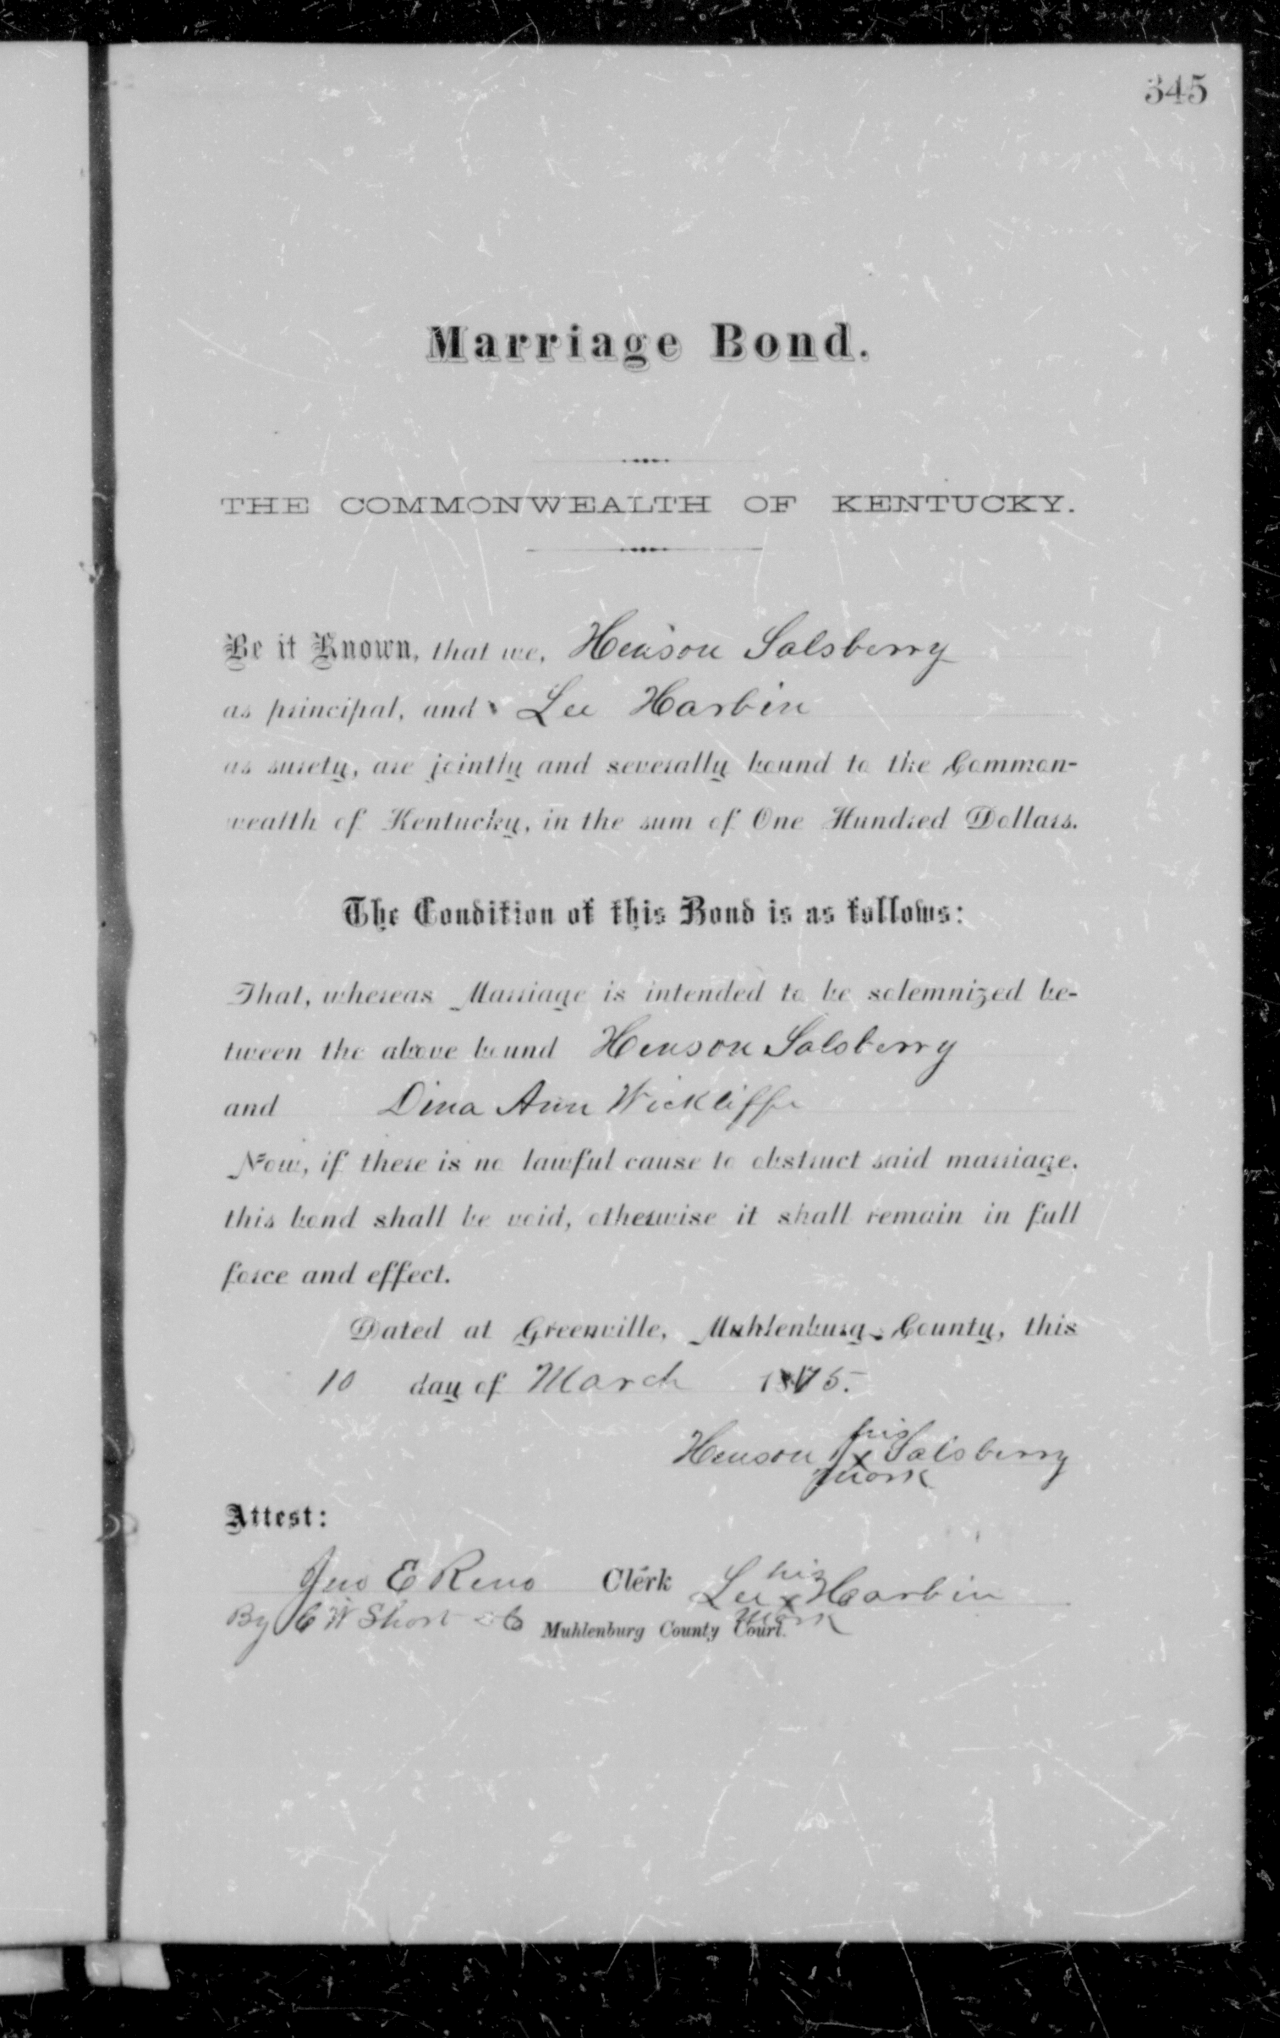 345
Marriage Bond.
THE COMMONWEALTH OF KENTUCKY.
Be it Known, that we, Henson Salsberry
as principal, and Lee Harbin
as surety, are jointly and severally bound to the Common-
wealth of Kentucky, in the sum of One Hundred Dollars.
The Condition of this Bond is as follows:
That, whereas Marriage is intended to be solemnized be-
tween the above bound Henson Salsberry
and Dina Ann Wickliffe
Now, if there is no lawful cause to obstruct said marriage,
this bond shall be void, otherwise it shall remain in full
force and effect.
Dated at Greenville, Muhlenburg County, this
10 day of March 1875.
his
Henson X Salsberry
mark
Attest:
his
Jno E Reno Clerk Lee x Harbin
mark
By C W Short DC Muhlenburg County Court.